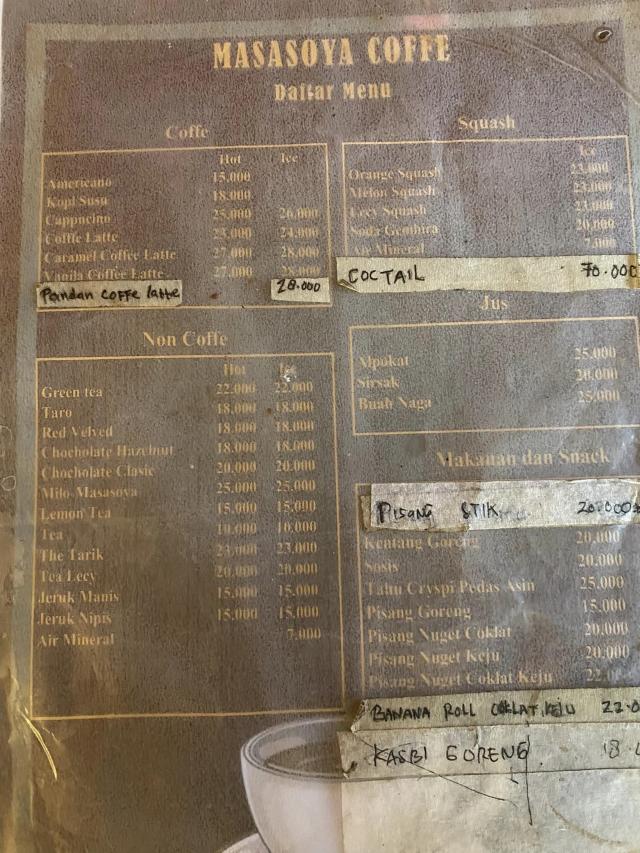 MASASOYA COFFE
Daftar Menu
Coffe
Hot Ice
Americano 15.000
Kopi Susu 18.000
Cappucino 25.000 26.000
Coffe Latte 23.000 24.000
Caramel Coffee Latte 27.000 28.000
Vanila Coffee Latte 27.000 28.000
Pandan Coffe latte 28.000
Non Coffe
Hot Ice
Green tea 22.000 22.000
Taro 18.000 18.000
Red Velved 18.000 18.000
Chocholate Hazelnut 18.000 18.000
Chocholate Clasic 20.000 20.000
Milo Masasoya 25.000 25.000
Lemon Tea 15.000 15.000
Tea 10.000 10.000
The Tarik 23.000 23.000
Tea Lecy 20.000 20.000
Jeruk Manis 15.000 15.000
Jeruk Nipis 15.000 15.000
Air Mineral 7.000
Squash
Ice
Orange Squash 23.000
Melon Squash 23.000
Lecy Squash 23.000
Soda Gembira 20.000
Air Mineral 7.000
COCTAIL 70.000
Jus
Alpokat 25.000
Sirsak 20.000
Buah Naga 25.000
Makanan dan Snack
PISANG STIK 20.000
Kentang Goreng 20.000
Sosis 20.000
Tahu Cryspi Pedas Asin 25.000
Pisang Goreng 15.000
Pisang Nuget Coklat 20.000
Pisang Nuget Keju 20.000
Pisang Nuget Coklat Keju
BANANA ROLL COKLAT, KEJU
KASBI GORENG